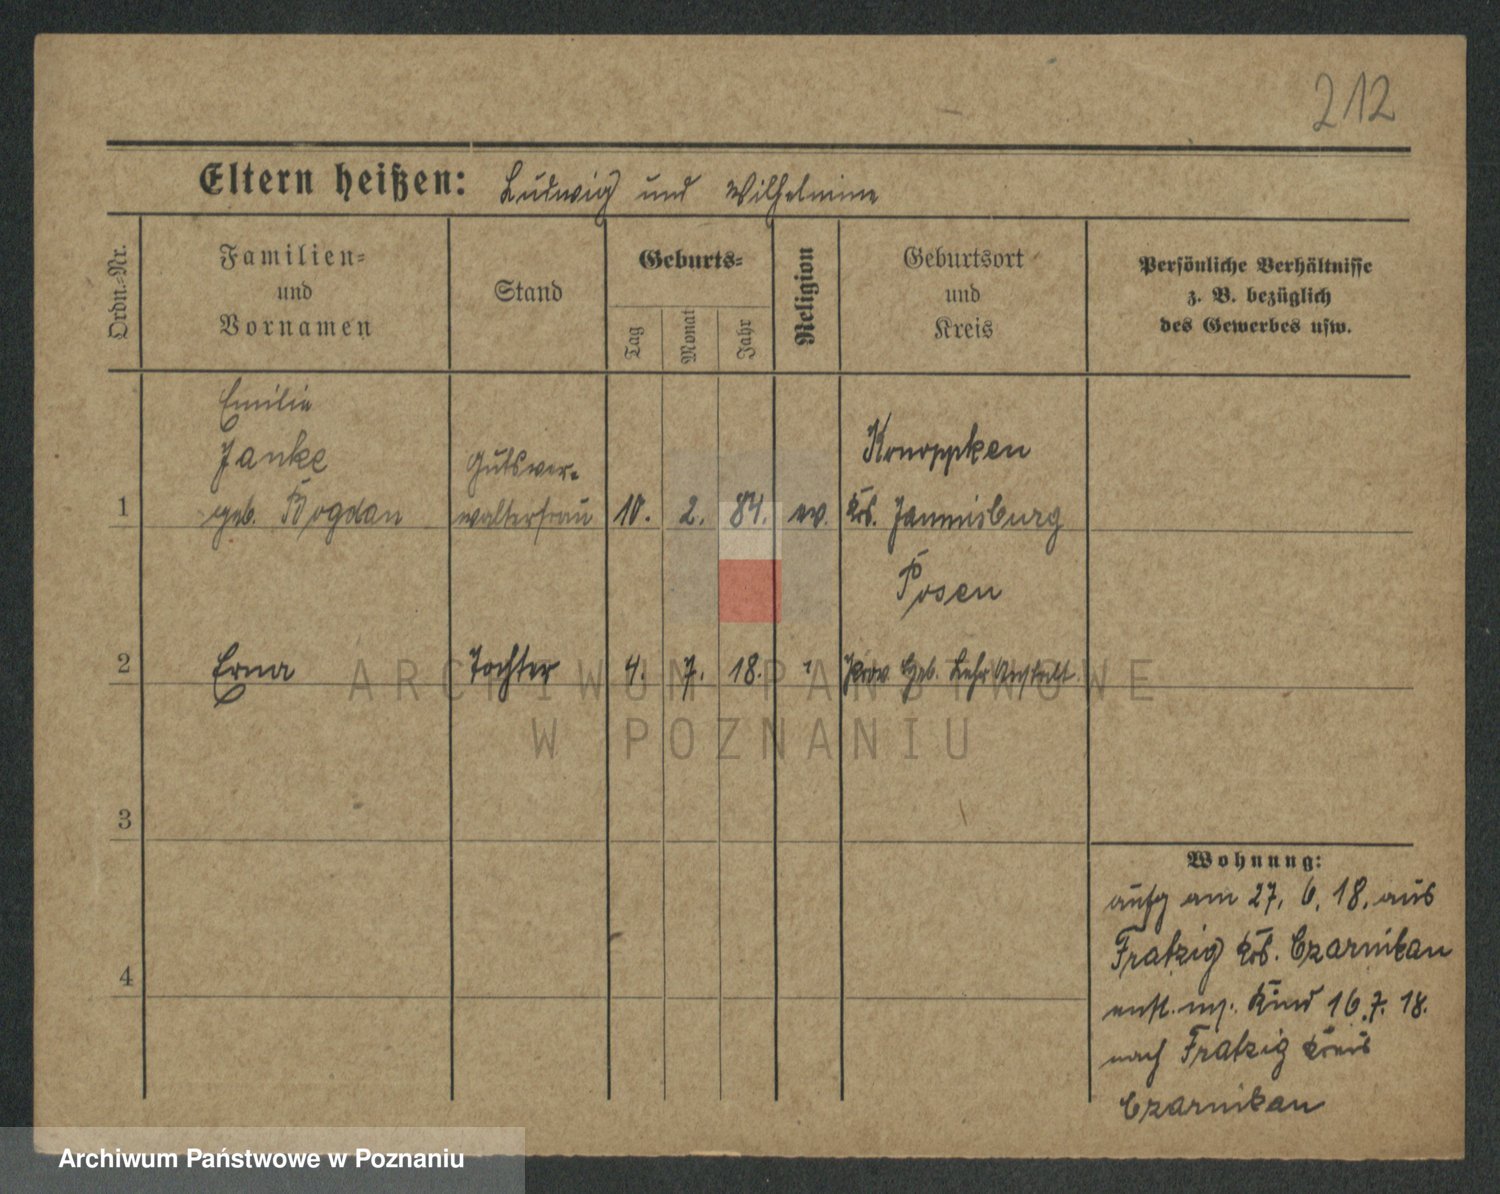 212
Eltern heißen: Ludwig und Wilhelmine
Ordn.-Nr.
Familien-
und
Vornamen
Stand
Geburts-
Tag
Monat
Jahr
Religion
Geburtsort
und
Kreis
Persönliche Verhältnisse
z. B. bezüglich
des Gewerbes usw.
Emilie
Janke
geb. Bogdan
Gutsver-
walterfrau
1
10. 2. 84. ev.
Knoppken
Krs. Jammisburg
Posen
2 Erna Tochter 4. 7. 18. " Prov. Heb. Lehr Anstalt
3
4
Wohnung:
aufg am 27. 6. 18. aus
Fratzig Krs. Czarnikau
entl. m. Kind 16.7.18.
nach Fratzig Kreis
Czarnikau
ARCHIWUM PAŃSTWOWE
W POZNANIU
Archiwum Państwowe w Poznaniu